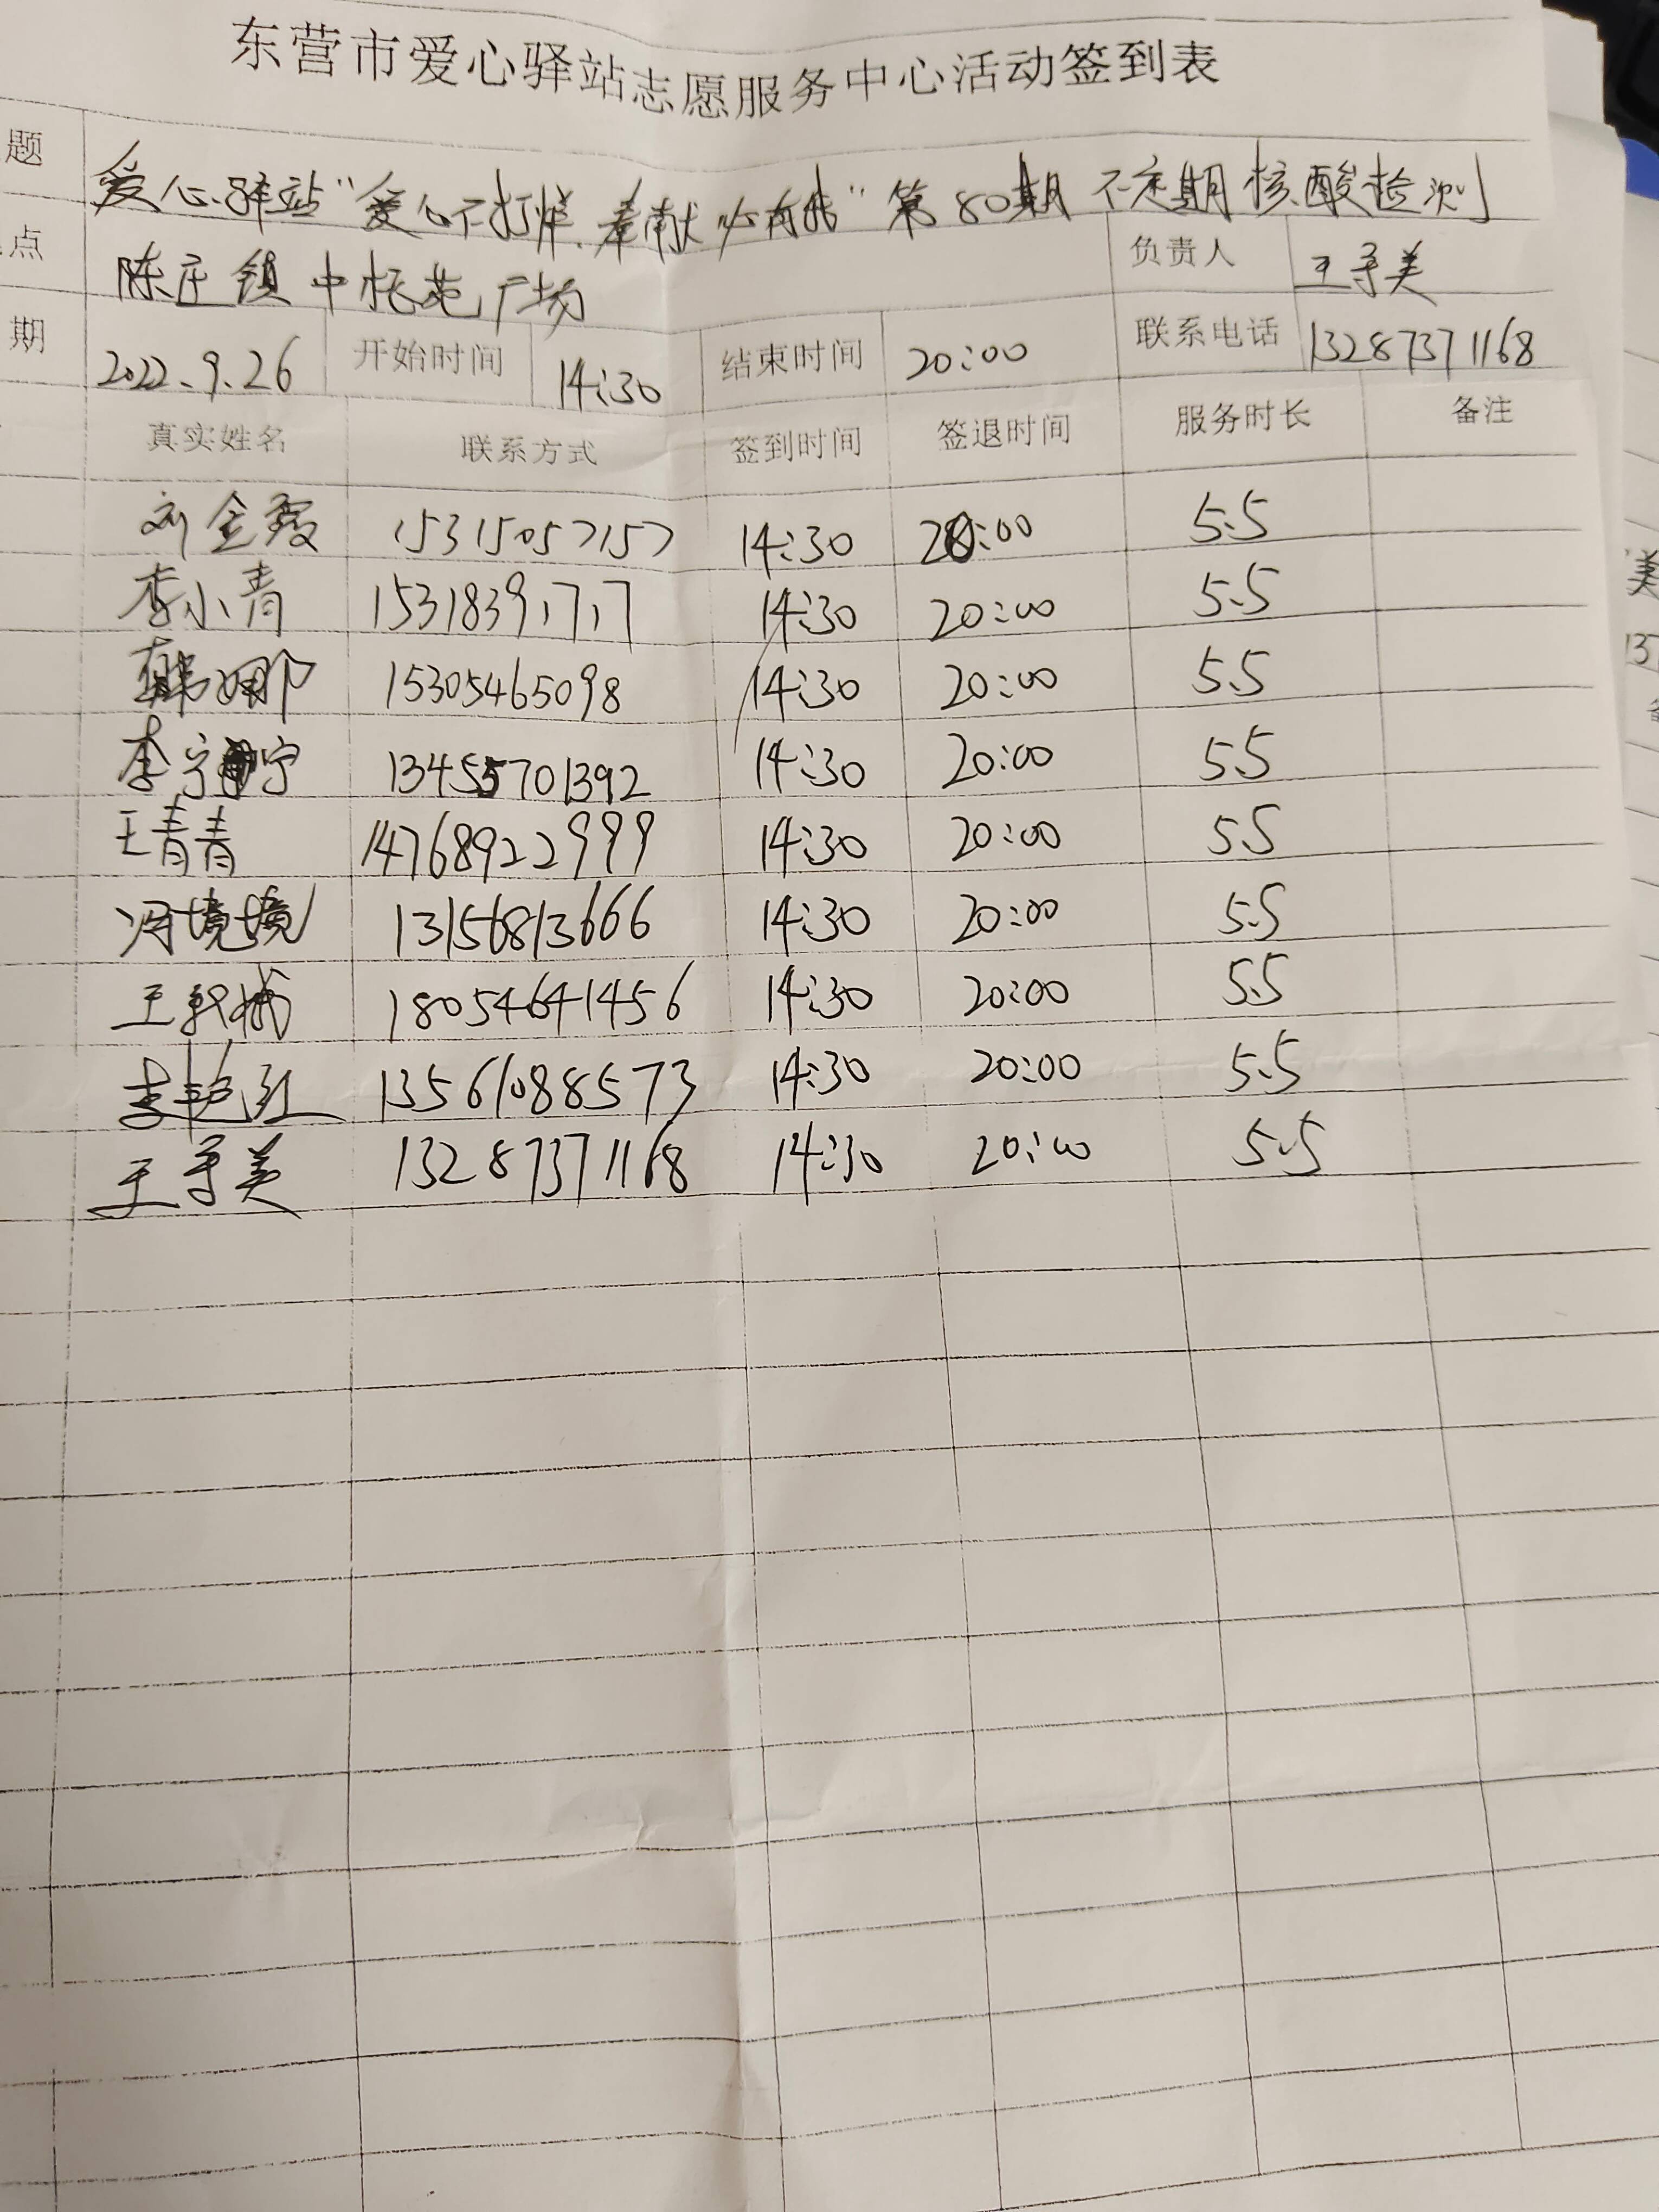 东营市爱心驿站志愿服务中心活动签到表
题 爱心驿站"爱心不打烊,奉献" 第80期 不定期核酸检测
点 陈庄镇中 广场 负责人 王美
期 2022.9.26 开始时间 14:30 结束时间 20:00 联系电话 13287371168
真实姓名 联系方式 签到时间 签退时间 服务时长 备注
刘金霞 15315057157 14:30 20:00 5.5
李小青 15318391717 14:30 20:00 5.5
韩娜 15305465098 14:30 20:00 5.5
李宁宁 13455701392 14:30 20:00 5.5
王青青 14768922999 14:30 20:00 5.5
冯境境 13156813666 14:30 20:00 5.5
王 18054641456 14:30 20:00 5.5
李艳红 13561088573 14:30 20:00 5.5
王美 13287371168 14:30 20:00 5.5
美
13